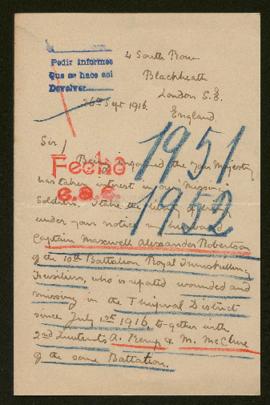 4 South Row
Pedir informes
Blackheath
Que se hace así
London S.E.
Devolver
26th Sept 1916
England
Sir/
1951
Being informed that your Majesty
Fecho
has taken interest in our missing
soldiers, I take the liberty of
1952
under your notice my husband
Captain Maxwell Alexander Robertson
of the 10th Battalion Royal Inniskilling
Fusiliers, who is reported wounded and
missing in the Thiepval District
since July 1st 1916, together with
2nd Lieutenants A. Kemp & M. McClure
of the same Battalion.